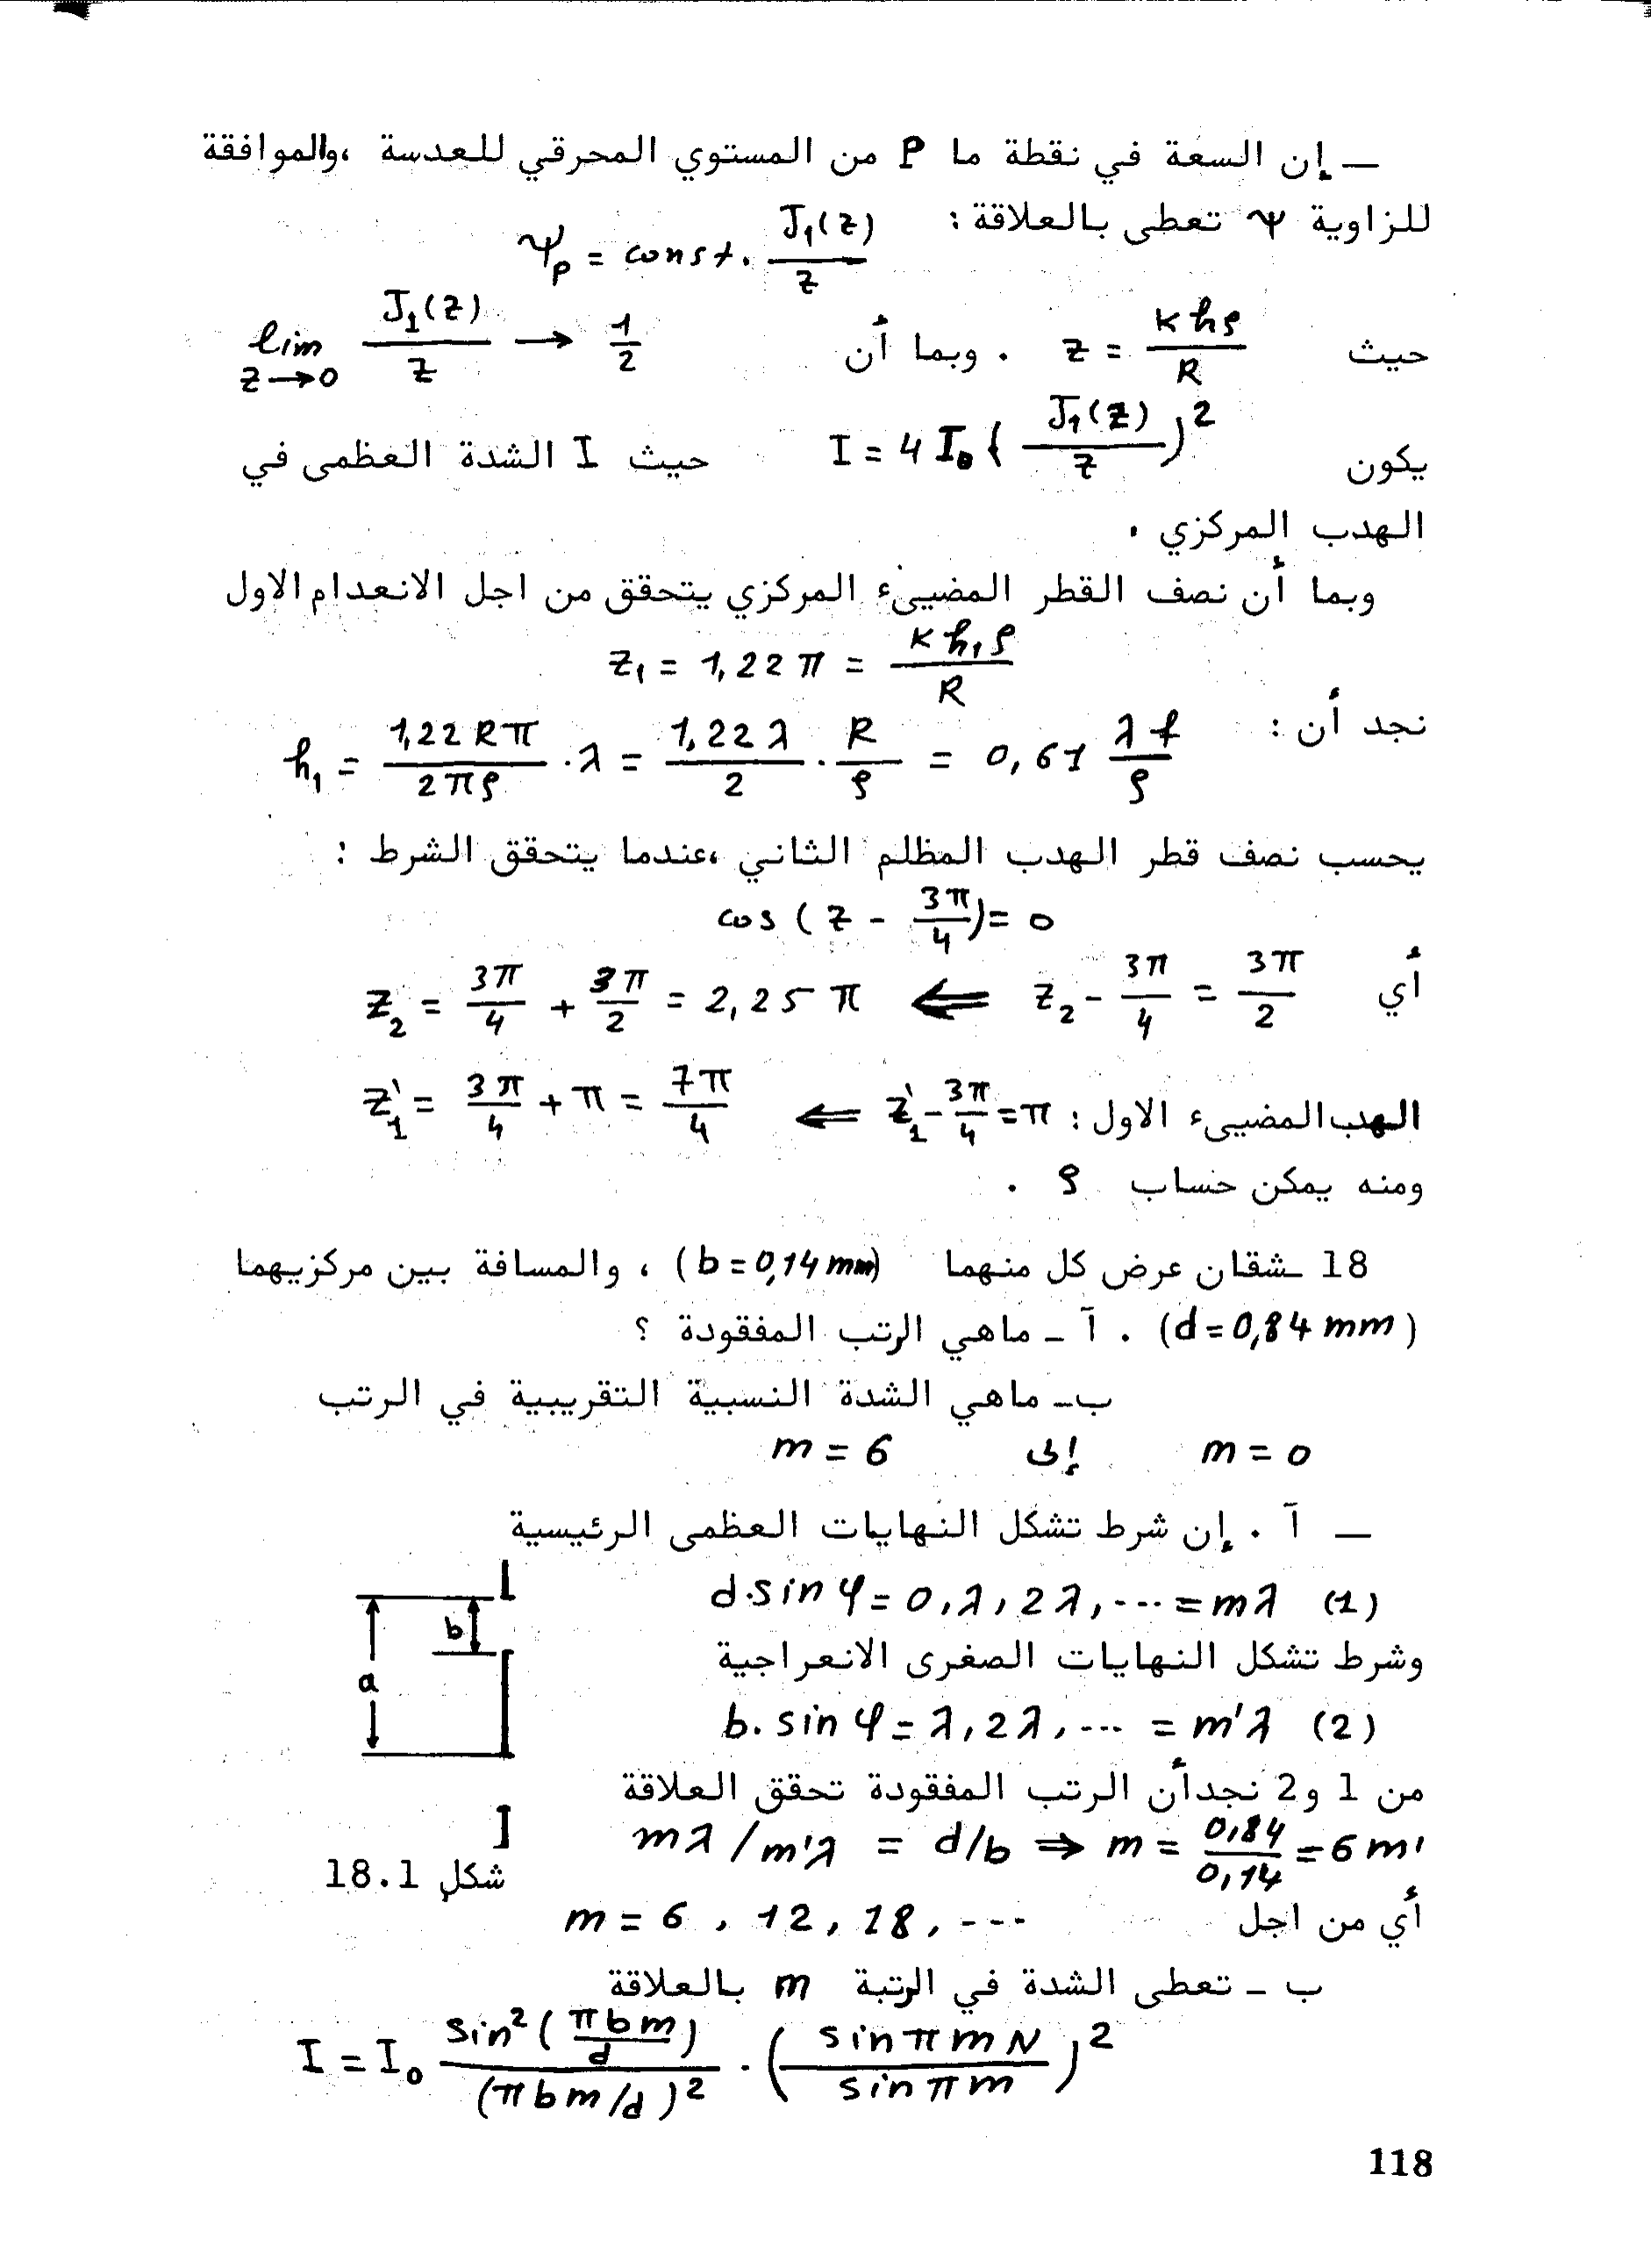 — إن السعة في نقطة ما P من المستوي المحرقي للعدسة ،والموافقة
للزاوية ψ تعطى بالعلاقة :
ψp = const. J1(z)/z
حيث z = Khρ/R . وبما أن lim z→0 J1(z)/z → 1/2
يكون I = 4 I0 ( J1(z)/z )² حيث I الشدة العظمى في
الهدب المركزي .
وبما أن نصف القطر المضييء المركزي يتحقق من اجل الانعدام الاول
z1 = 1,22 π = Kh1ρ/R
نجد أن :
h1 = 1,22 Rπ/2πρ . λ = 1,22 λ/2 . R/ρ = 0,61 λf/ρ
يحسب نصف قطر الهدب المظلم الثاني ،عندما يتحقق الشرط :
cos ( z - 3π/4 ) = 0
أي z2 - 3π/4 = 3π/2 ⇐ z2 = 3π/4 + 3π/2 = 2,25 π
الهدب المضييء الاول : z'1 - 3π/4 = π ⇐ z'1 = 3π/4 + π = 7π/4
ومنه يمكن حساب ρ .
18 ـ شقان عرض كل منهما (b = 0,14 mm) ، والمسافة بين مركزيهما
(d = 0,84 mm) . آ ـ ماهي الرتب المفقودة ؟
ب ـ ماهي الشدة النسبية التقريبية في الرتب
m = 0 إلى m = 6
— آ . إن شرط تشكل النهايات العظمى الرئيسية
d.sin φ = 0, λ, 2λ, --- = mλ (1)
b
وشرط تشكل النهايات الصغرى الانعراجية
a
b. sin φ = λ, 2λ, --- = m'λ (2)
من 1 و2 نجدأن الرتب المفقودة تحقق العلاقة
mλ / m'λ = d/b ⇒ m = 0,84/0,14 = 6 m'
شكل 18.1
أي من اجل m = 6 , 12, 18, ---
ب ـ تعطى الشدة في الرتبة m بالعلاقة
I = I0 sin² ( πbm/d ) / (πbm/d)² . ( sin πmN / sin πm )²
118